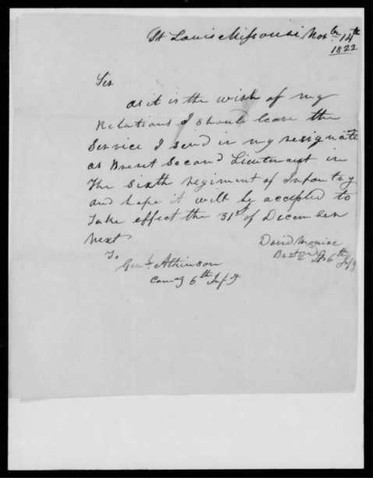 St Louis Missouri Novbr 14th
1822
Sir
as it is the wish of my
Relations I should leave the
Service I send in my resignate
as Brevet Second Lieutenant in
The Sixth regiment of Infantry
and hope it will be accepted to
Take effect the 31st of December
next
David Moniac
Bvt 2nd Lt 6th Infy
To
Genl Atkinson
Comdg 6th Infy